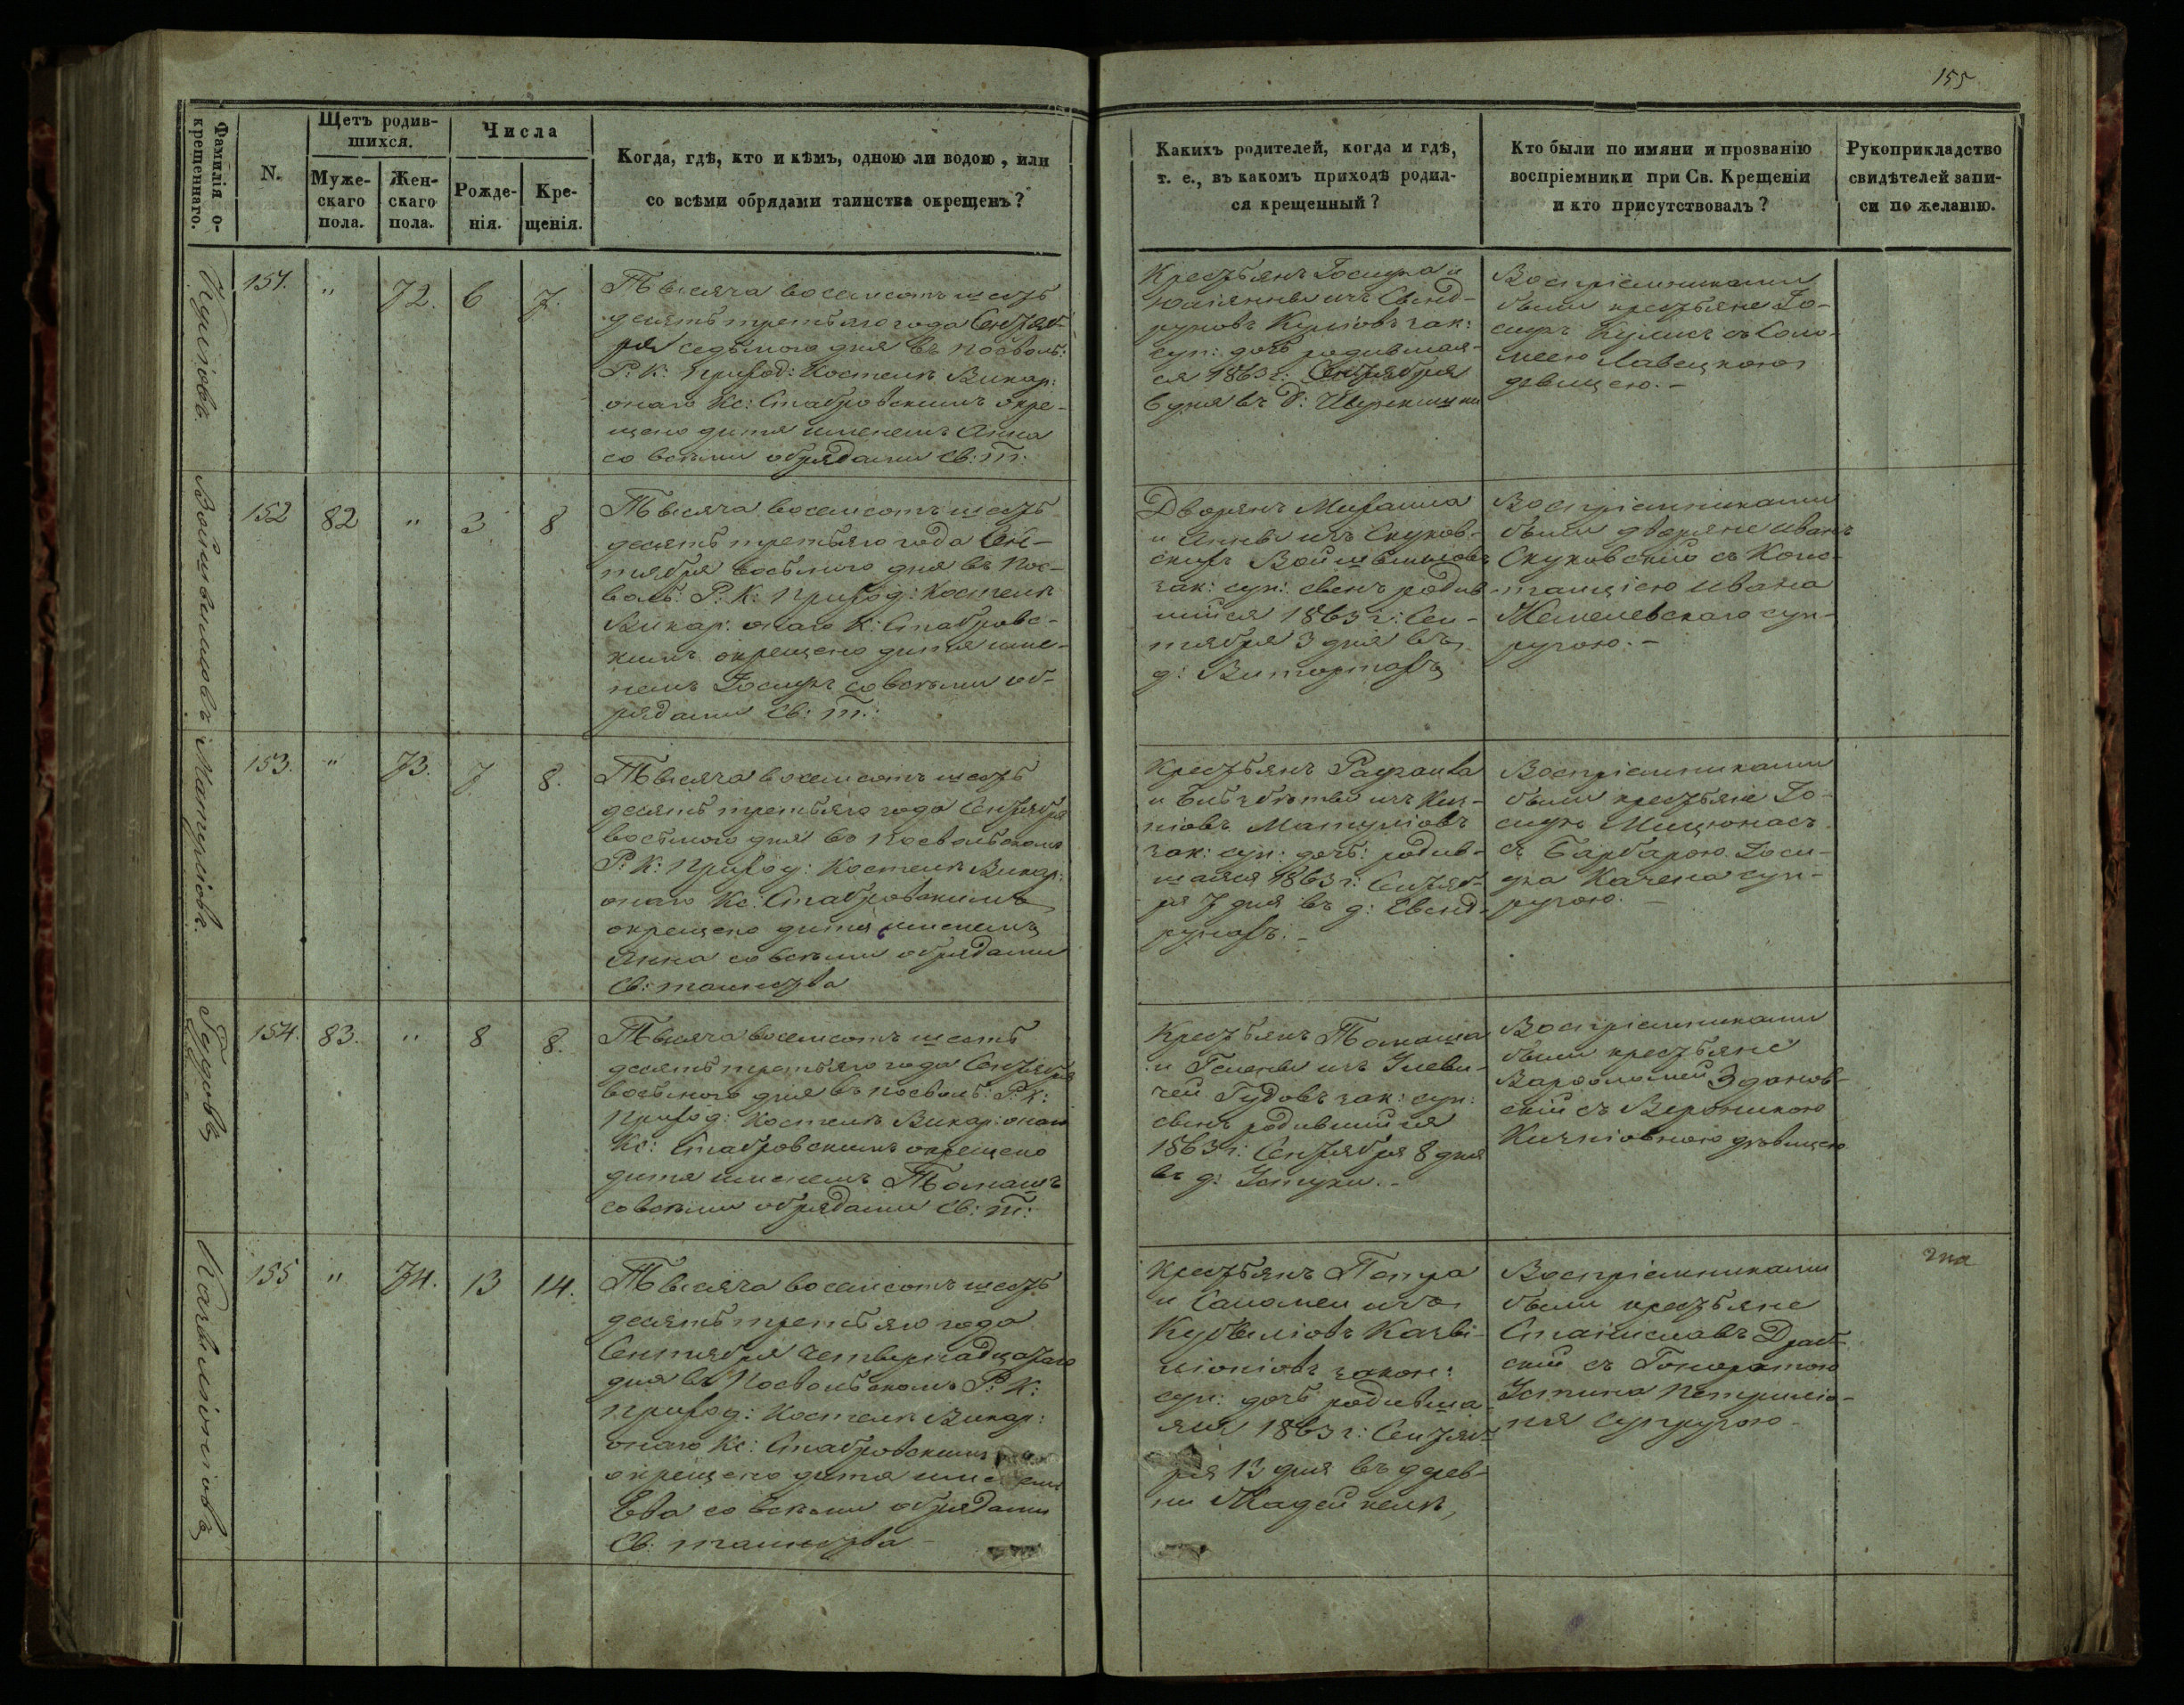 155
Фамилія о-
крещеннаго.
N.
Щетъ родив-
шихся.
Муже-
скаго
пола.
Жен-
скаго
пола.
Числа
Рожде-
нія.
Кре-
щенія.
Когда, гдѣ, кто и кѣмъ, одною ли водою, или
со всѣми обрядами таинства окрещенъ?
Какихъ родителей, когда и гдѣ,
т. е., въ какомъ приходѣ родил-
ся крещенный?
Кто были по имяни и прозванію
воспріемники при Св. Крещеніи
и кто присутствовалъ?
Рукоприкладство
свидѣтелей запи-
си по желанію.
151. " 72. 6 7.
Тысяча восемсотъ шесть
десятъ третьяго года Сентяб-
ря седьмого дня въ Посволь:
Р: К: Приход: Костелѣ Викар:
онаго Кс: Стабровскимъ окре-
щено дитя именемъ Анна
со всѣми обрядами Св: Т:
Крестьянъ Іосифа и
Юліянны изъ Свенд-
руновъ зак:
суп: дочь родившая-
ся 1863 г: Сентября
6 дня въ д:
Воспріемниками
были крестьяне Іо-
сифъ съ Соло-
меею Лавецкою
девицею. -
Войшвилловъ
152 82 " 3 8
Тысяча восемсотъ шесть
десятъ третьяго года Сен-
тября восьмого дня въ Пос-
воль: Р: К: Приход: Костелѣ
Викар: онаго К: Стабровс-
кимъ окрещено дитя име-
немъ Іосифъ со всѣми об-
рядами Св: Т:
Дворянъ Михаила
и Анны изъ Скуков-
скихъ Войшвилловъ
зак: суп: сынъ родив-
шійся 1863 г: Сен-
тября 3 дня въ
д:
Воспріемниками
были дворяне Иванъ
Скуковскій съ Конс-
танціею Ивана
суп-
ругою. -
Матуліовъ
153. " 73. 7 8.
Тысяча восемсотъ шесть
десятъ третьяго года Сентября
восьмого дня во Посвольскомъ
Р: К: Приход: Костелѣ Викар:
онаго Кс: Стабровскимъ
окрещено дитя именемъ
Анна со всѣми обрядами
Св: таинства
Крестьянъ
и изъ
Матуліовъ
зак: суп: дочь: родив-
шаяся 1863 г: Сентяб-
ря 7 дня въ д: Свенд-
рунахъ. -
Воспріемниками
были крестьяне Іо-
сифъ Мицюнасъ
съ Барбарою Іоси-
фа Качена суп-
ругою. -
Гудовъ
154. 83. " 8 8.
Тысяча восемсотъ шесть
десятъ третьяго года Сентября
восьмого дня въ Посволь: Р: К:
Приход: Костелѣ Викар: онаго
Кс: Стабровскимъ окрещено
дитя именемъ Томашъ
со всѣми обрядами Св: Т:
Крестьянъ Томаша
и изъ
Гудовъ зак: суп:
сынъ родившійся
1863 г: Сентября 8 дня
въ д:
Воспріемниками
были крестьяне
Варѳоломей Зданов-
скій съ Вероникою
дѣвицею
155 " 74. 13 14.
Тысяча восемсотъ шесть
десятъ третьяго года
Сентября четвернадцатаго
дня въ Посвольскомъ Р: К:
Приход: Костелѣ Викар:
онаго Кс: Стабровскимъ
окрещено дитя именемъ
Ева со всѣми обрядами
Св: таинства -
Крестьянъ Петра
и Саломеи изъ
закон:
суп: дочь родивша-
яся 1863 г: Сентяб-
ря 13 дня въ дерев-
ни
Воспріемниками
были крестьяне
Станиславъ
съ Гоноратою
супругою -